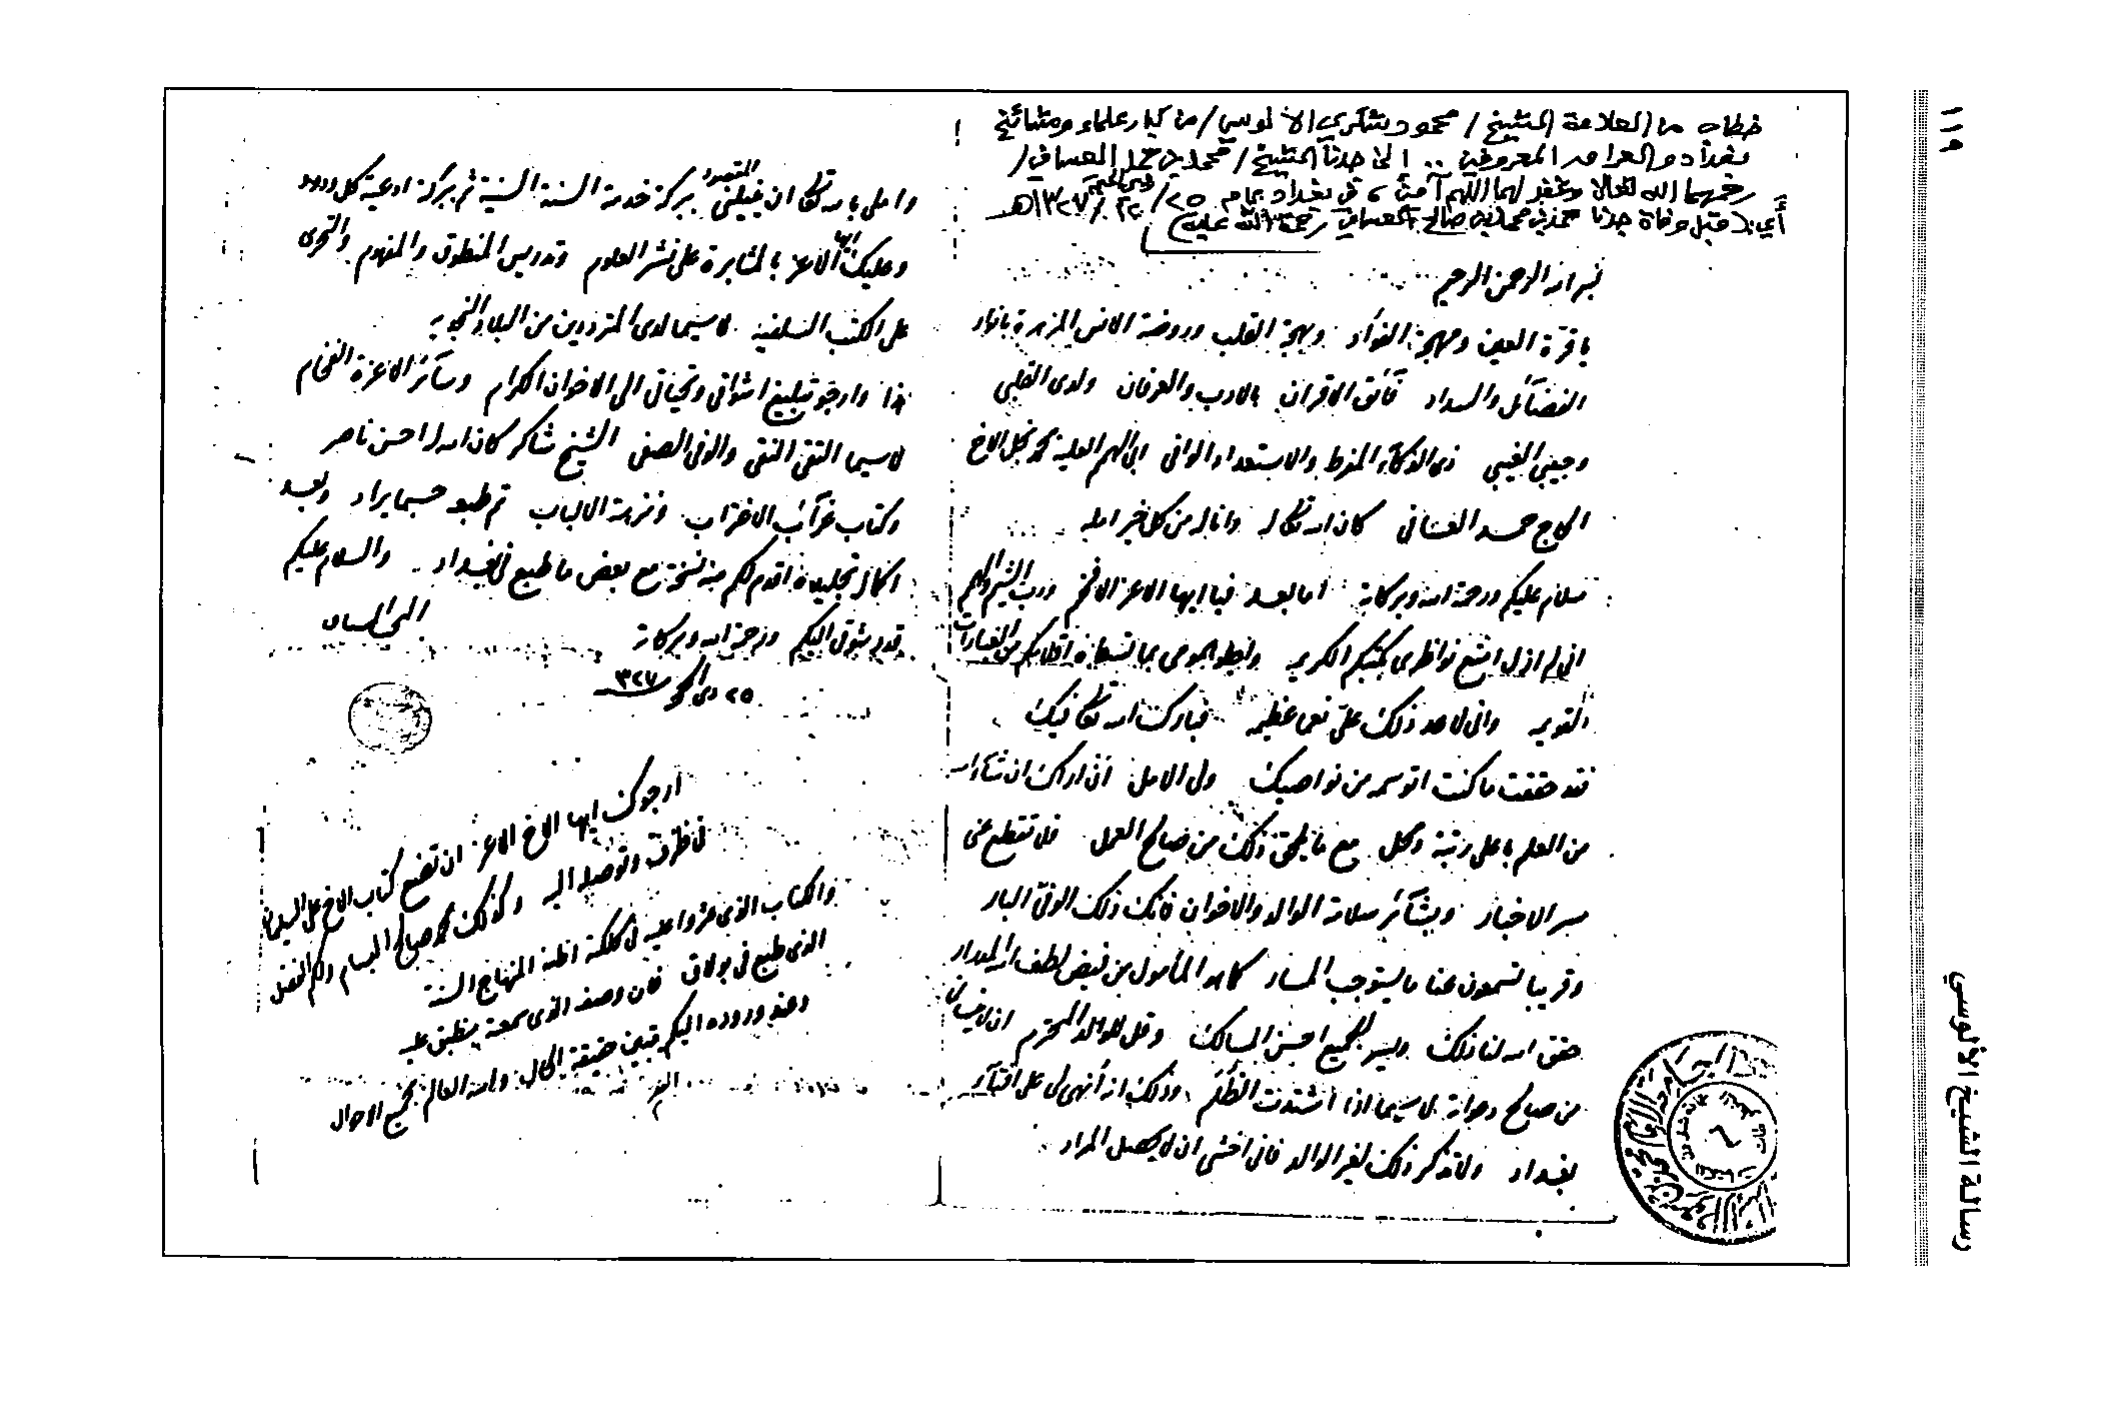 ١١٩
رسالة الشيخ الألوسي
خطاب من العلامة الشيخ / محمود شكري الألوسي / من كبار علماء ومشائخ
بغداد والعراق المعروفين .. الى جدنا الشيخ / محمد بن حمد العسافي /
رحمهما الله تعالى وغفر لهما اللهم آمين ، في بغداد بعام ٢٥ / ذي الحجة / ١٣٢٧هـ
أي قبل وفاة جدنا حمد بن محمد بن صالح العسافي رحمة الله عليه
بسم الله الرحمن الرحيم
يا قرة العين ومهجة الفؤاد وبهجة القلب وروضة الانس المزهرة بانوار
الفضائل والسداد فائق الاقران بالادب والعرفان ولدي القلبي
وحبيبي الغيبي ذي الذكاء المفرط والاستعداد الوافي ابي الهمم العلية محمد نجل الاخ
الحاج حمد العسافي كان الله تعالى له واناله من كل خير امله
سلام عليكم ورحمة الله وبركاته اما بعد فيا ايها الاعز الافخم ورب الشيم والهمم
اني لم ازل امتع نواظري بكتبكم الكريمه من العبارات
القويمه واني لاعد ذلك علي نعما عظيمه فبارك الله تعالى فيك
فقد حققت ما كنت اتوسمه من نواصيك ولي الامل اني اراك ان شاء الله
من العلم باعلى رتبة ومحل مع ما يلحق ذلك من صالح العمل فلا تقطع عني
سر الاخبار وبشائر سلامة الوالد والاخوان فانك ذلك الوفي البار
وقريبا تسمعون عنا ما يستوجب المسار كما هو المأمول من فيض لطفه المدرار
حقق الله لنا ذلك ويسر للجميع احسن المسالك وقل للوالد المحترم ان لا ينساني
من صالح دعواته لا سيما اذا اشتدت الظلم وذلك انه أنهي لي على افتاء
بغداد ولا تذكر ذلك لغير الوالد فاني اخشى ان لا يحصل المراد
واملي بالله تعالى ان ينيلني المقصود ببركة خدمة السنة السنية ثم ببركة ادعية كل ودود
وعليك ايها الاعز بالمثابرة على نشر العلوم وتدريس المنطوق والمفهوم والتحري
على الكتب السلفيه لا سيما لدى المترددين من البلاد النجديه
هذا وارجو تبليغ اشواقي وتحياتي الى الاخوان الكرام وسائر الاعزة الفخام
لا سيما التقي النقي والوفي الصفي الشيخ شاكر كان الله له احسن ناصر
وكتاب غرائب الاغتراب ونزهة الالباب تم طبعه حسبما يراد وبعد
اكمال تجليده اقدم لكم منه نسخة مع بعض ما طبع في بغداد والسلام عليكم
قدر شوقي اليكم ورحمة الله وبركاته
٢٥ ذي الحجة ٣٢٧
ارجوك ايها الاخ الاعز ان تضع كتاب الاخ علي السليمان
في ظرف وتوصله اليه وكذلك محمد صالح البسام ولكم الفضل
والكتاب الذي عثروا عليه في كلكته اظنه المنهاج السنة
الذي طبع في بولاق فان وصفه الذي سمعته ينطبق عليه
وعند وروده اليكم تتبين حقيقة الحال والله العالم بجميع الاحوال